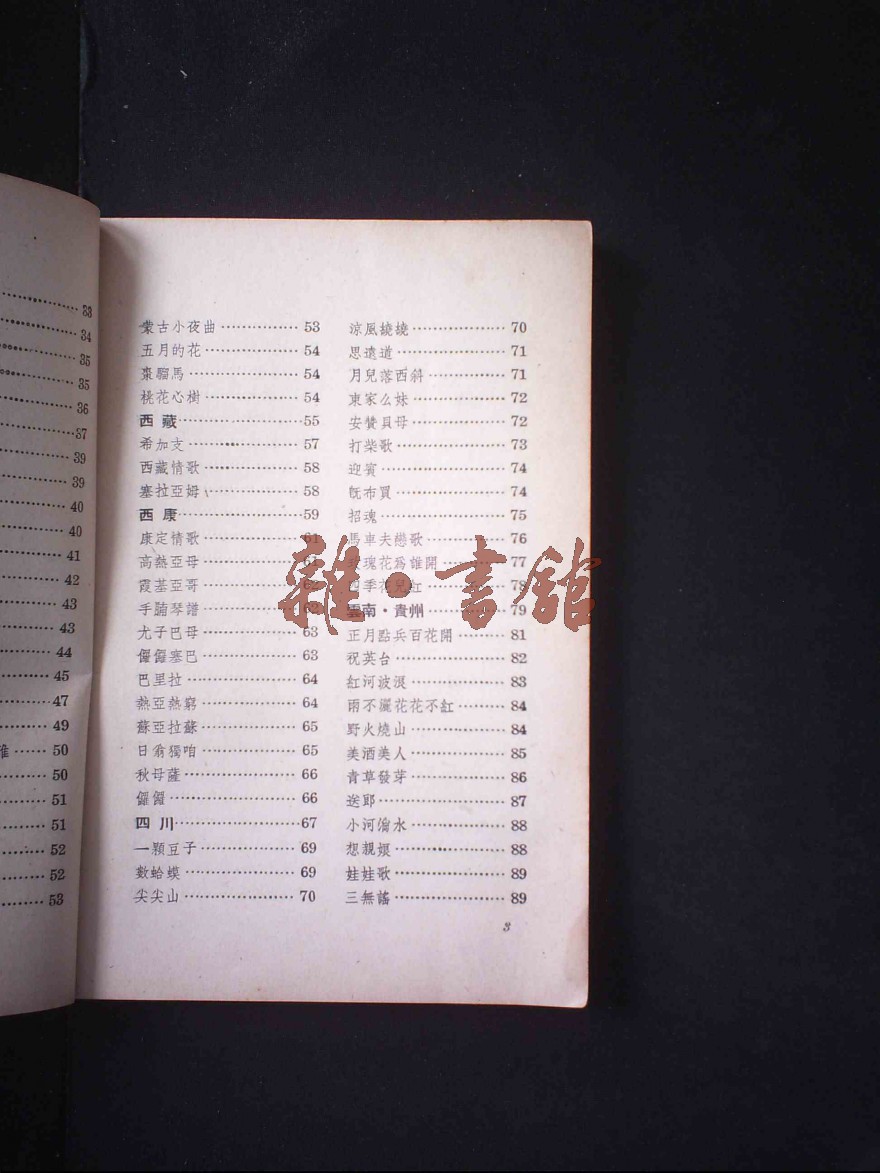 33
34
35
35
36
37
39
39
40
40
41
42
43
43
44
45
47
49
50
50
51
51
52
52
53
蒙古小夜曲……………53
五月的花………………54
棗騮馬…………………54
桃花心樹………………54
西藏……………………55
希加支…………………57
西藏情歌………………58
塞拉亞姆………………58
西康……………………59
康定情歌………………61
高熱亞母………………61
霞基亞哥………………62
手腩琴譜………………62
尤子巴母………………63
儸儸塞巴………………63
巴里拉…………………64
熱亞熱窮………………64
蘇亞拉蘇………………65
日翁獨咱………………65
秋母薩…………………66
儸儸……………………66
四川……………………67
一顆豆子………………69
數蛤蟆…………………69
尖尖山…………………70
涼風繞繞………………70
思遠道…………………71
月兒落西斜……………71
東家么妹………………72
安贊貝母………………72
打柴歌…………………73
迎賓……………………74
旣布買…………………74
招魂……………………75
馬車夫戀歌……………76
玫瑰花爲誰開…………77
四季花兒紅……………78
雲南·貴州……………79
正月點兵百花開………81
祝英台…………………82
紅河波浪………………83
雨不灑花花不紅………84
野火燒山………………84
美酒美人………………85
青草發芽………………86
送郎……………………87
小河淌水………………88
想親娘…………………88
娃娃歌…………………89
三無謠…………………89
3
雜·書館